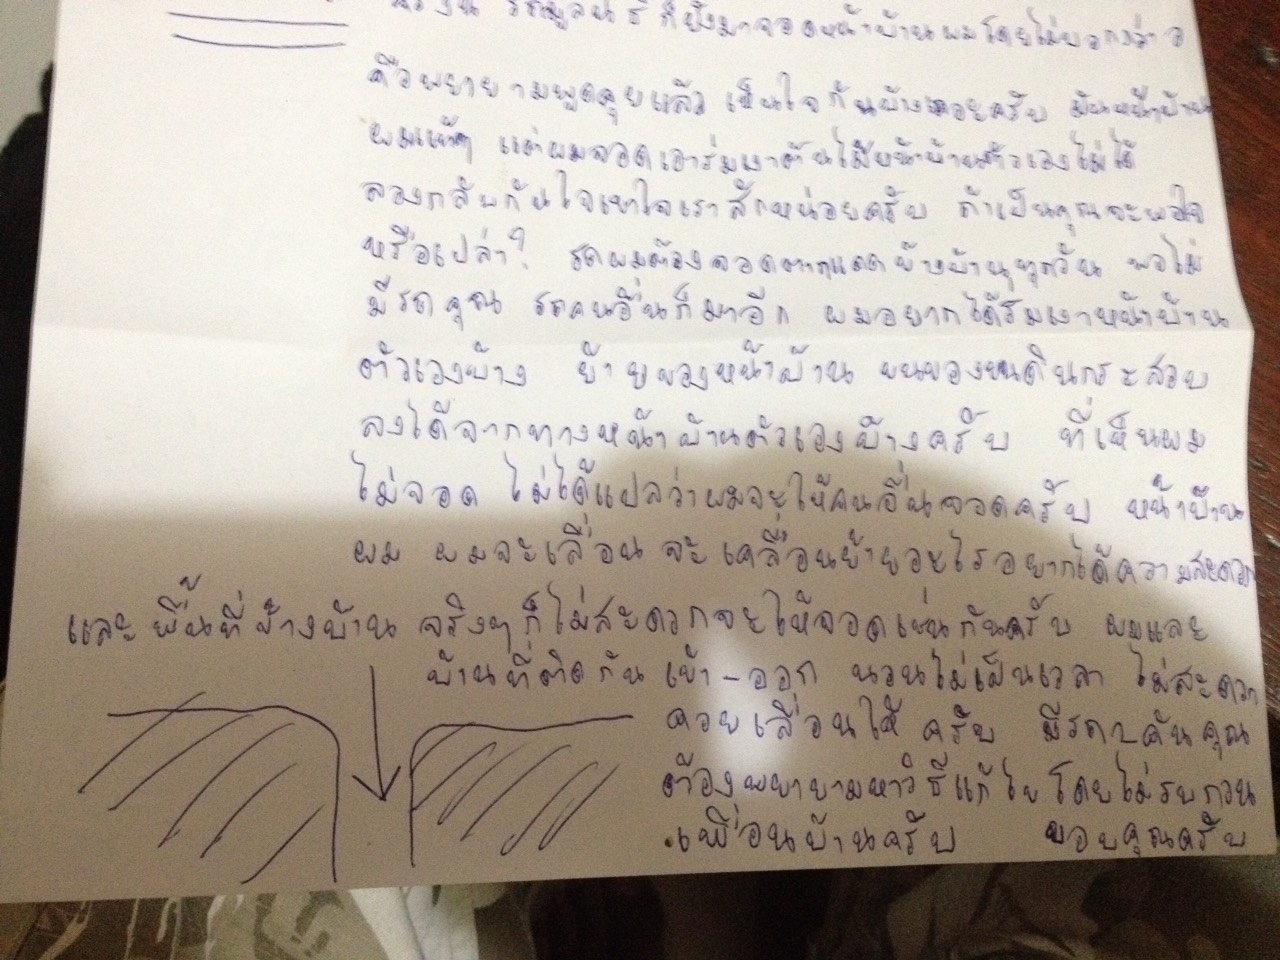 รถมูลนิธิก็ยังมาจอดหน้าบ้านผมโดยไม่บอกกล่าว
คือพยายามพูดคุยแล้ว เห็นใจกันบ้างเถอะครับ มันหน้าบ้าน
ผมแท้ๆ แต่ผมจอดเอาร่มเงาต้นไม้หน้าบ้านตัวเองไม่ได้
ลองกลับกันใจเขาใจเราสักหน่อยครับ ถ้าเป็นคุณจะพอใจ
หรือเปล่า? รถผมต้องจอดตากแดดข้างบ้านทุกวัน พอไม่
มีรถคุณ รถคนอื่นก็มาอีก ผมอยากได้ร่มเงาหน้าบ้าน
ตัวเองบ้าง ย้ายของหน้าบ้าน ขนของขนดินกระสอบ
ลงได้จากทางหน้าบ้านตัวเองบ้างครับ ที่เห็นผม
ไม่จอด ไม่ได้แปลว่าผมจะให้คนอื่นจอดครับ หน้าบ้าน
ผม ผมจะเลื่อน จะเคลื่อนย้ายอะไรอยากได้ความสะดวก
และพื้นที่ข้างบ้าน จริงๆก็ไม่สะดวกจะให้จอดเช่นกันครับ ผมและ
บ้านที่ติดกัน เข้า-ออก ไม่เป็นเวลา ไม่สะดวก
คอยเลื่อนให้ครับ มีรถ 2 คันคุณ
ต้องพยายามหาวิธีแก้ไขโดยไม่รบกวน
เพื่อนบ้านครับ ขอบคุณครับ